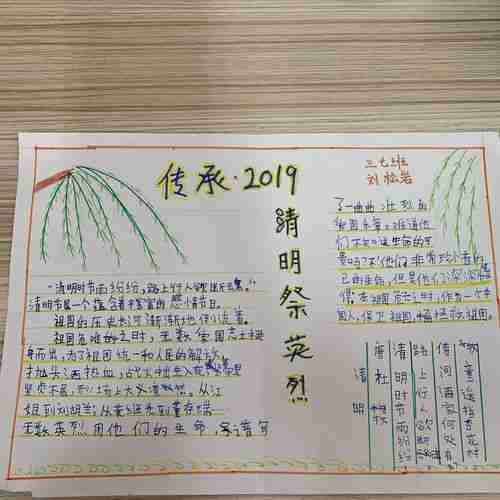 传承·2019
清明祭英烈
三七班
刘松岩
"清明时节雨纷纷,路上行人欲断魂。"
清明节是一个蕴含着丰富的感情节日。
祖国的历史长河渐渐地住了
祖国危难的之时,无数爱国志士挺
身而出,为了祖国统一和人民的解放,
抛头颅洒热血,战火
坚贞不屈,刑场上大义凛然。从江
姐到刘胡兰,从黄继光到董存瑞
无数英烈用他们的生命,谱写
了一曲曲壮烈的
爱国乐章。难道他
们不知道生命的可
贵吗?不!他们非常珍惜着自
己的生命,但是他们
祖国危亡之时,作为一个中
国人,保卫祖国,拯救祖国。
清明
唐 杜牧
清明时节雨纷纷
路上行人欲断
借问酒家何处有
牧童遥指杏花村